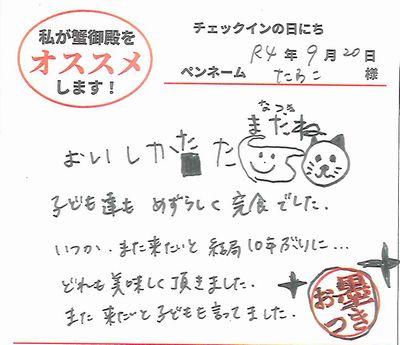 私が蟹御殿を
オススメ
します！
チェックインの日にち
R4年9月20日
ペンネーム たらこ 様
なつき
まだね
おいしかた た
子ども達も めずらしく 完食でした.
いつか、また来たいと 結局10年ぶりに…
どれも美味しく頂きました.
また 来たいと子どもも言ってました.
お墨
つき